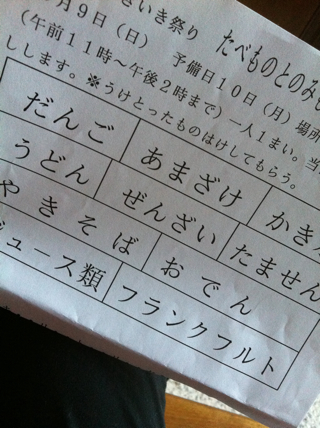 さいき祭り たべものとのみも
月９日（日） 予備日１０日（月）場所
（午前１１時～午後２時まで）一人１まい。当
しします。※うけとったものはけしてもらう。
だんご あまざけ かき
うどん ぜんざい たません
やきそば おでん
ジュース類 フランクフルト